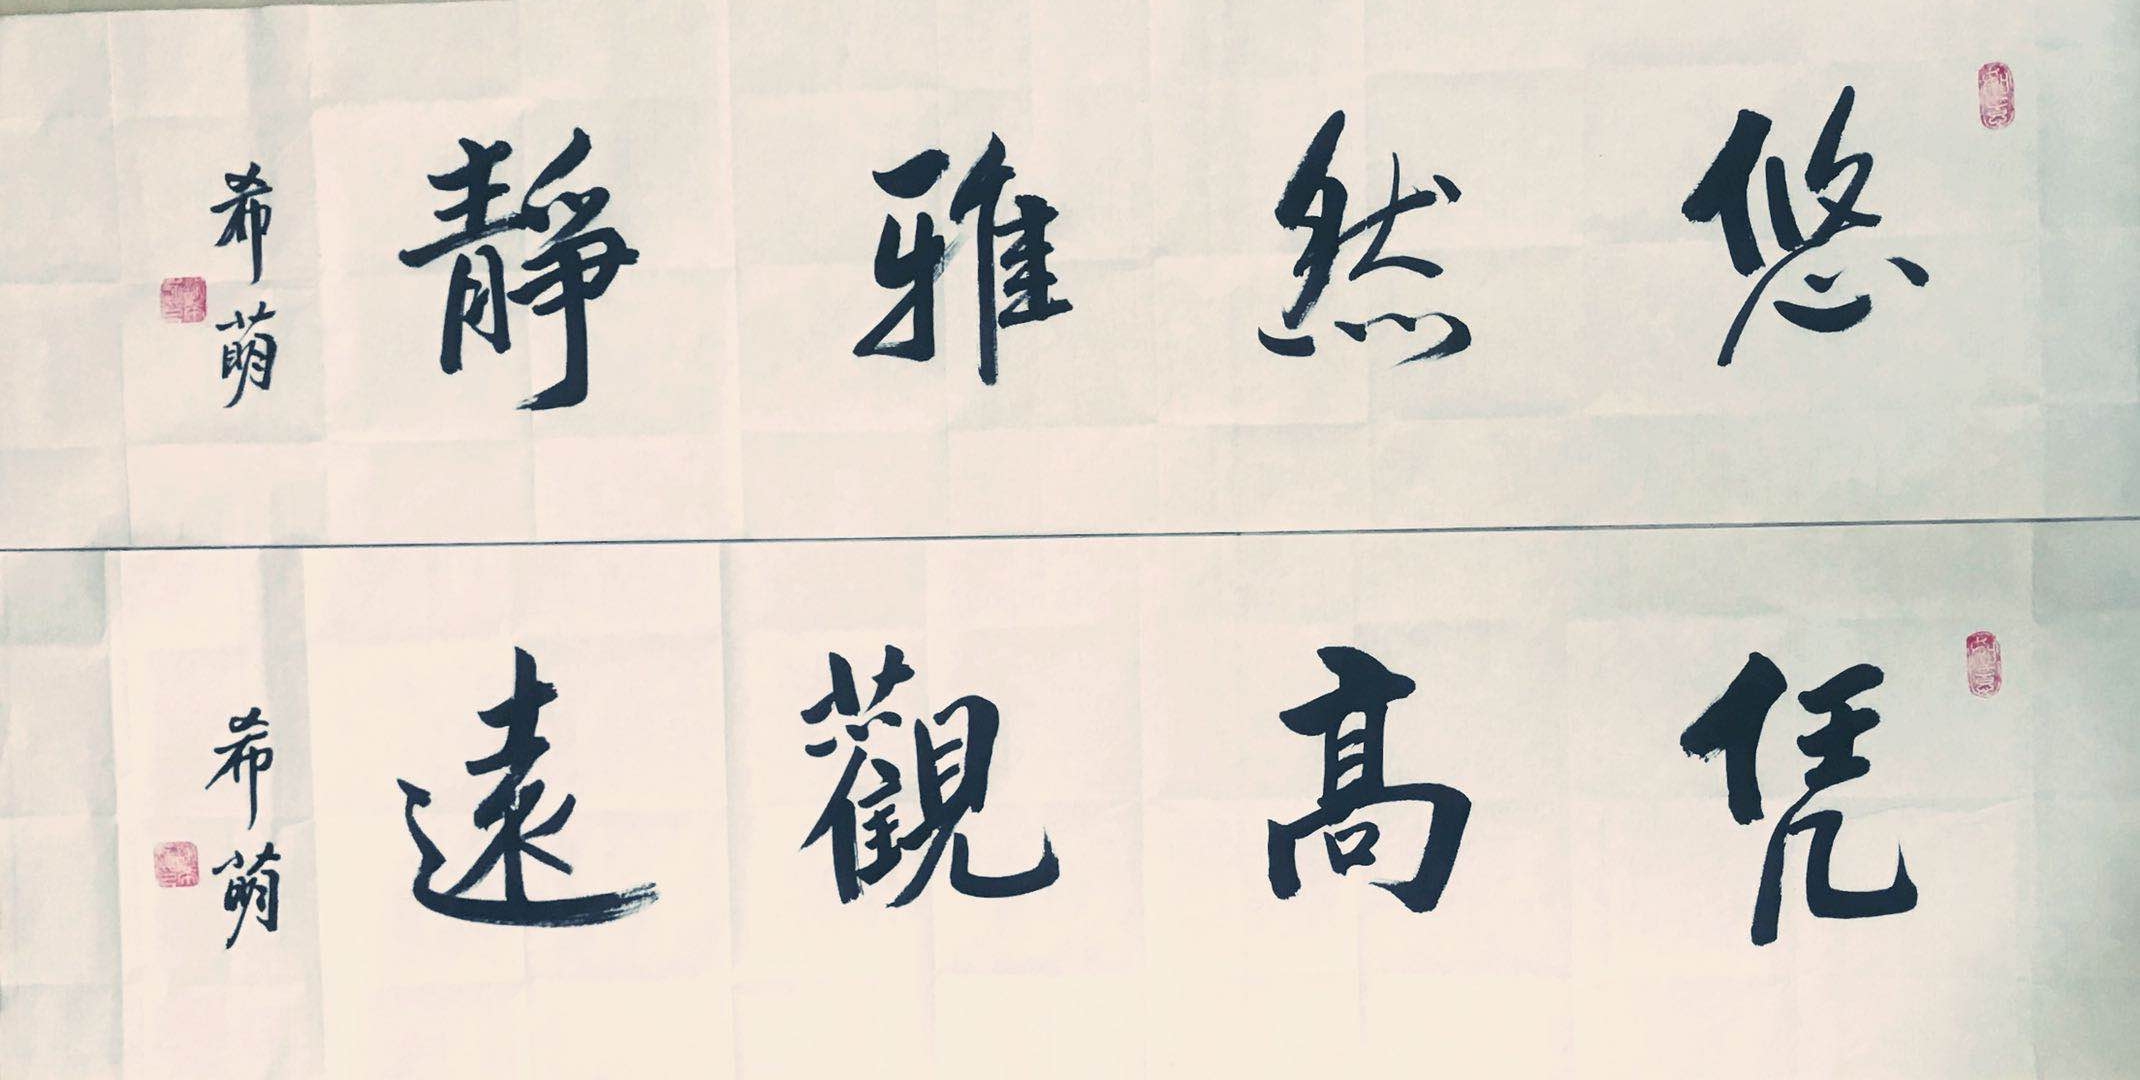 悠然雅靜
希萌
凭高觀遠
希萌